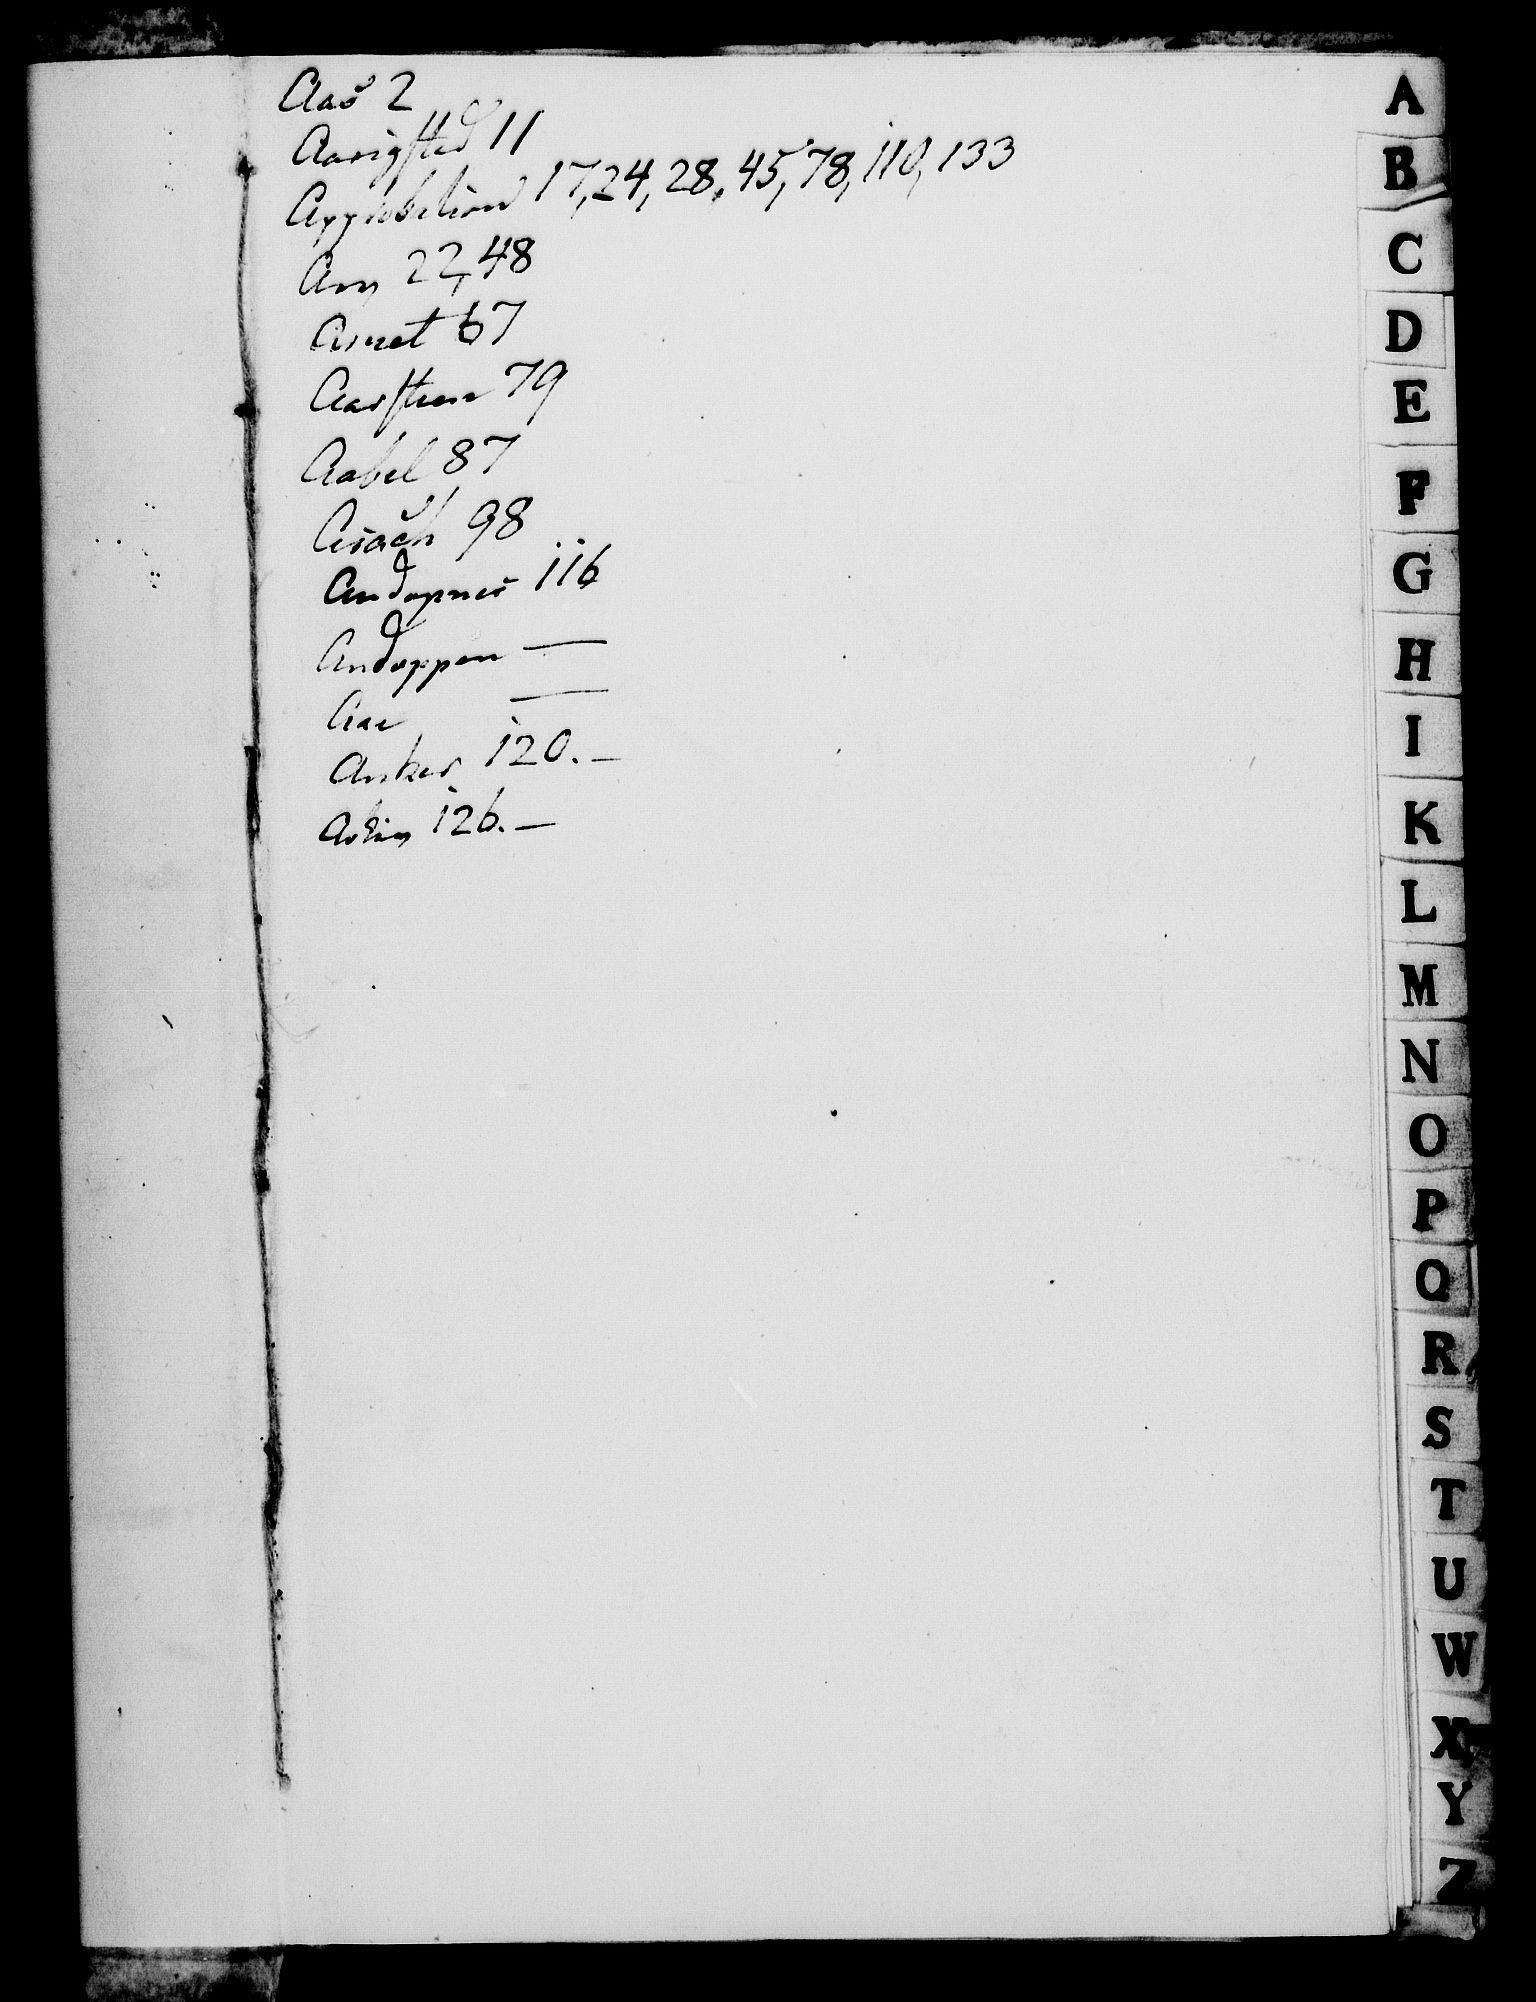 Aas 2
Aarigsted 11
Approbation 17, 24, 28, 45, 78, 110, 133
Any 22, 48
Arnet 67
Aarstun 79
Aabel 87
98
Andopnes 116
Andoppen —
Aae —
Anker 120. —
126. —
A
B
C
D
E
F
G
H
I
K
L
M
N
O
P
Q
R
S
T
U
W
X
Y
Z